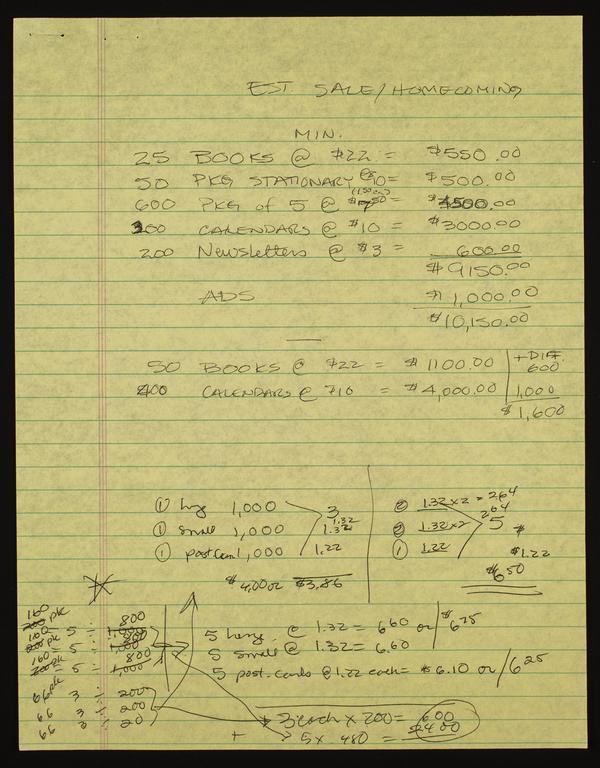 EST SALE/HOMECOMING
MIN.
25 BOOKS @ $22 = $550.00
50 PKG STATIONARY @ 10 = $500.00
600 PKG of 5 @ $7.50 = $4500.00
300 CALENDARS @ $10 = $3000.00
200 Newsletters @ $3 = 600.00
$9150.00
ADS $1,000.00
$10,150.00
50 BOOKS @ $22 = $1100.00 + DIF. 600
400 CALENDARS @ $10 = $4,000.00 1,000
$1,600
① large 1,000 3
① small 1,000 1.32 1.32
① postcard 1,000 1.22
$4.00 or $3.86
② 1.32 x 2 = 2.64
② 1.32 x 2 2.64 5
① 1.22 $ $1.22
$6.50
160 pk
160 5 ÷ 800
160 5 ÷ 800
160 5 ÷ 800
66 pk 3 ÷ 200
66 3 ÷ 200
66 3 ÷ 20
5 large @ 1.32 = 6.60 or $6.25
5 small @ 1.32 = 6.60
5 post. cards @ 1.22 each = $6.10 or /6.25
3 each x 200 = 600
+ 5 x 480 = 2400